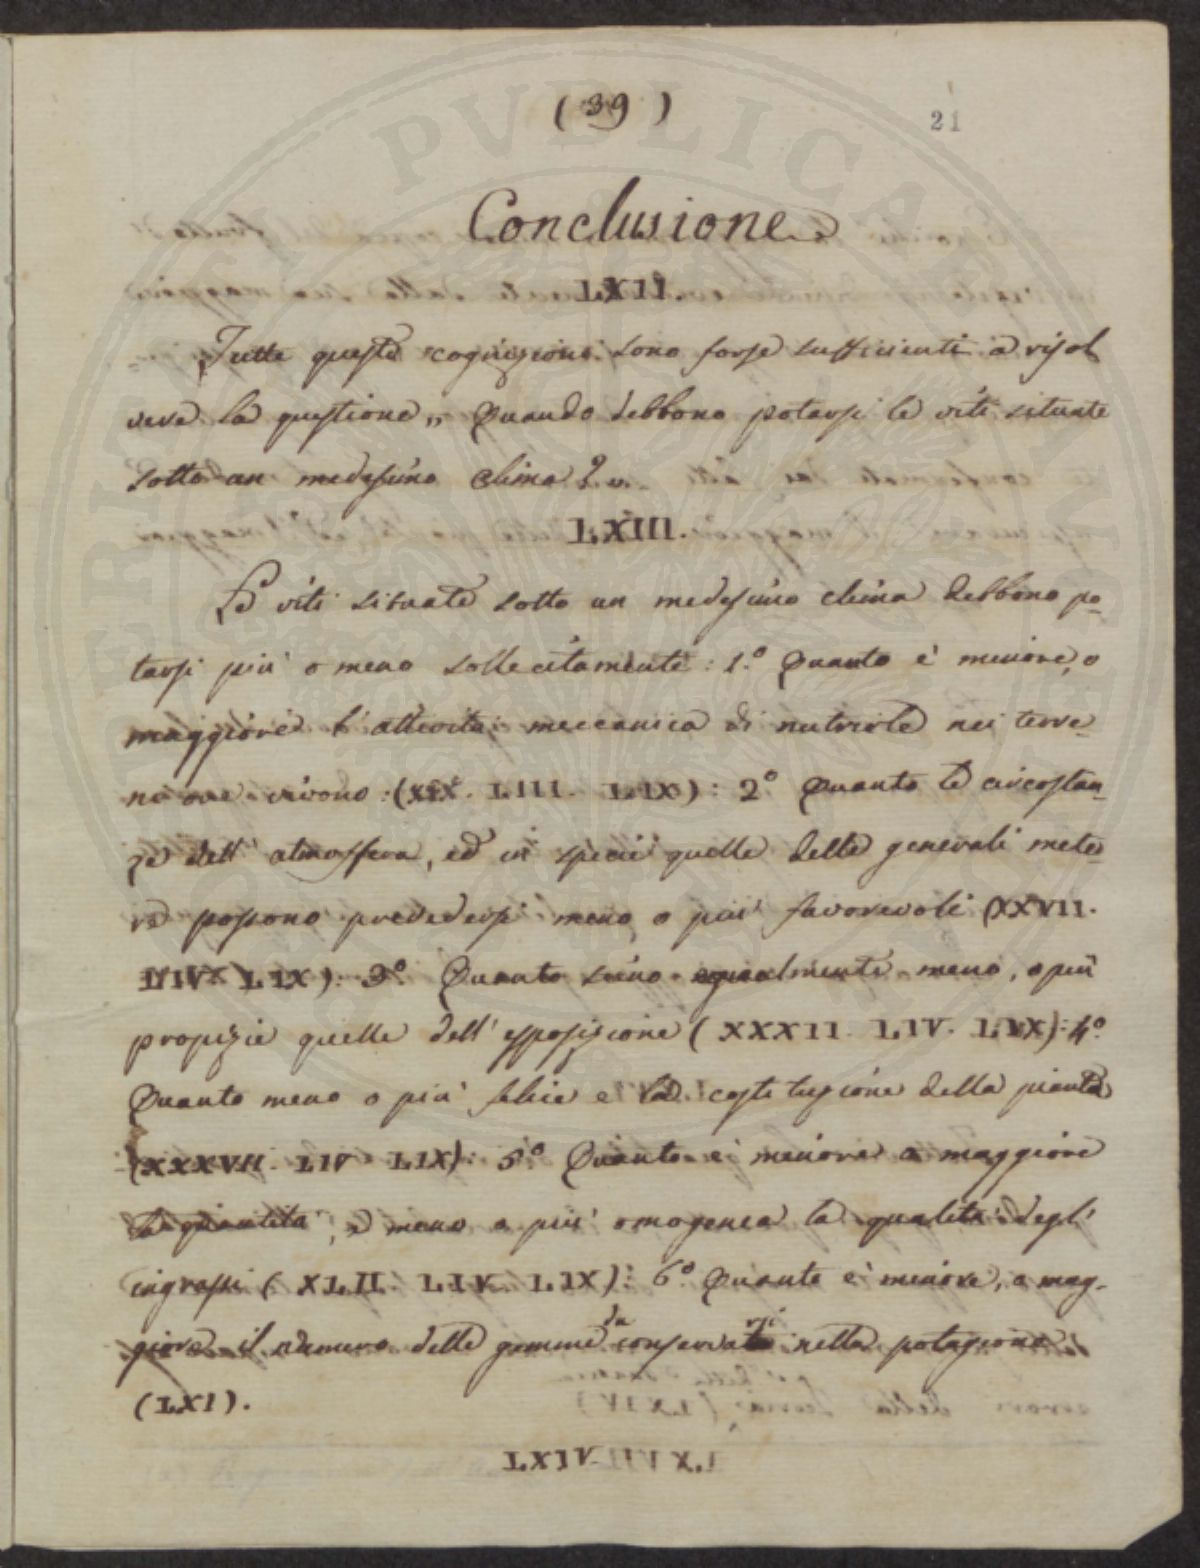 (39)
21
Conclusione
LXII.
Tutte queste cognizioni sono forse sufficienti a risol
vere la questione „ Quando debbono potarsi le viti situate
sotto un medesimo clima? „
LXIII.
Le viti situate sotto un medesimo clima debbono po-
tarsi più o meno sollecitamente: 1.º Quanto è minore, o
maggiore l'attività meccanica di nutrirle nei terre-
ni ove vivono (XIX. LIII. LIX): 2º Quanto le circostan-
ze dell'atmosfera, ed in specie quelle delle generali mete-
re possono prevedersi meno, o più favorevoli (XXVII.
LIV. LIX): 3º. Quanto siano egualmente meno, o più
propizie quelle dell'esposizione (XXXII. LIV. LIX): 4º.
Quanto meno o più felice è la costituzione della pianta
(XXXVII. LIV. LIX): 5º Quanto è minore o maggiore
la quantità, e meno o più omogenea la qualità degl'
ingrassi (XLII. LIV. LIX): 6º Quanto è minore, o mag-
giore il numero delle gemme da conservarsi nella potagione
(LXI).
LXIV.